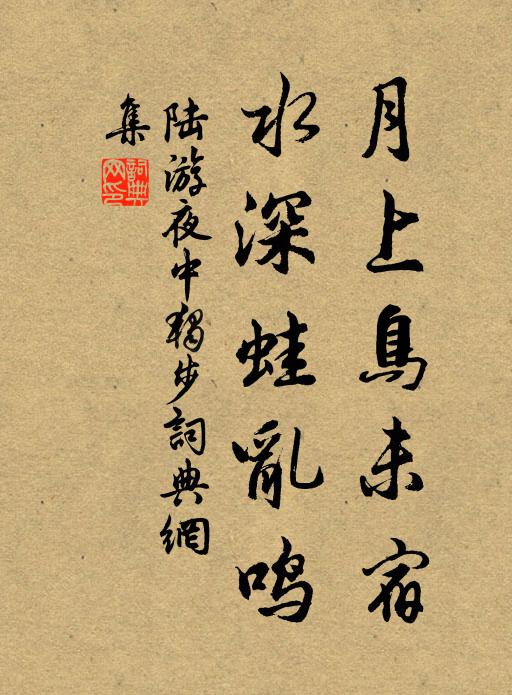 月上鳥未宿
水深蛙亂鳴
陆游夜中獨步詞典網
集
詞典网印